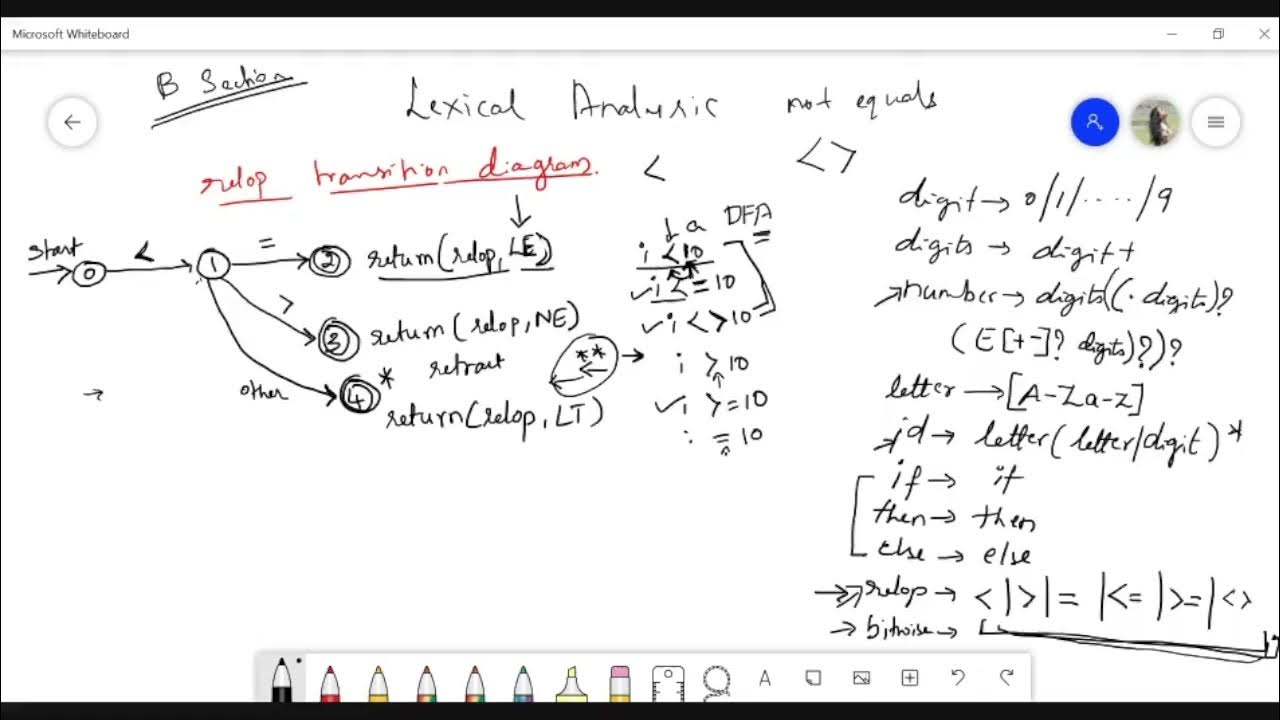 Microsoft Whiteboard
B Section
Lexical Analysis not equals
< >
relop transition diagram. <
start 0 < 1 = 2 return(relop, LE)
> 3 return(relop, NE)
retract
other 4 * return(relop, LT)
**
f a DFA
i < 10
i <= 10
i <> 10
i > 10
i >= 10
i = 10
digit → 0/1/...../9
digits → digit+
number → digits((. digits)?
(E[+-]? digits)?)?
letter → [A-Za-z]
id → letter(letter/digit)*
if → if
then → then
else → else
relop → < | > | = | <= | >= | <>
bitwise →
A